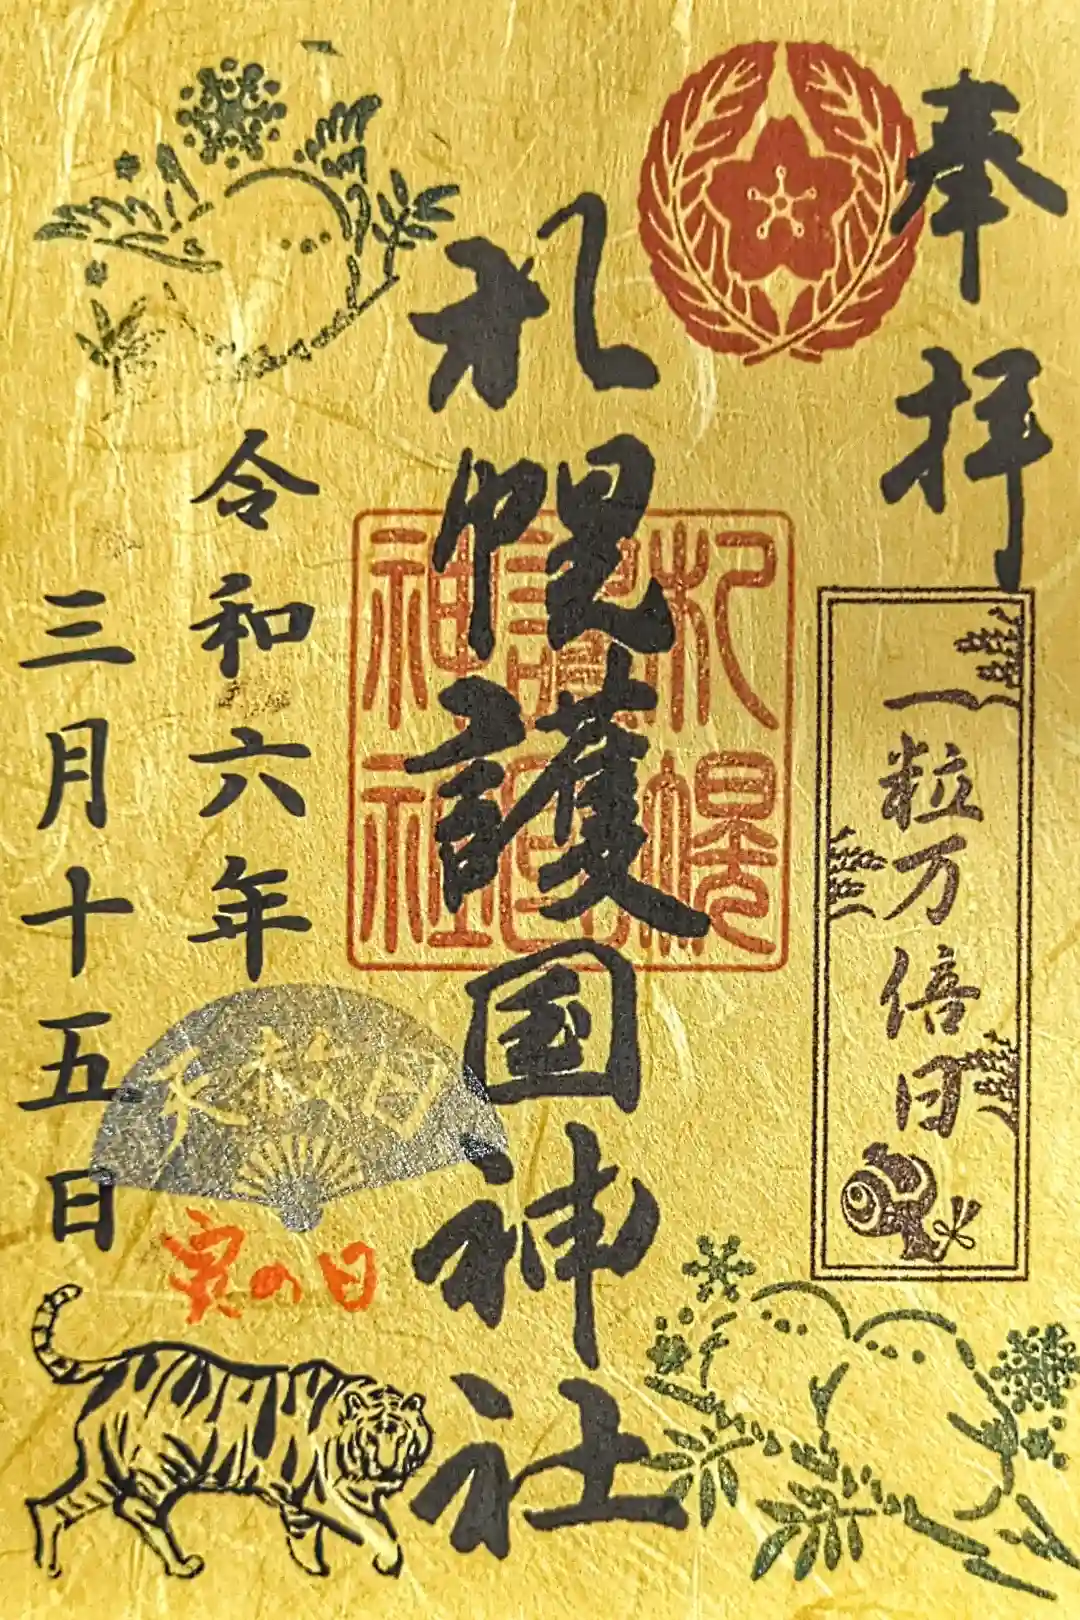 奉拝
一粒万倍日
札幌護国神社
札幌
護国
神社
令和六年
三月十五日
天赦日
寅の日